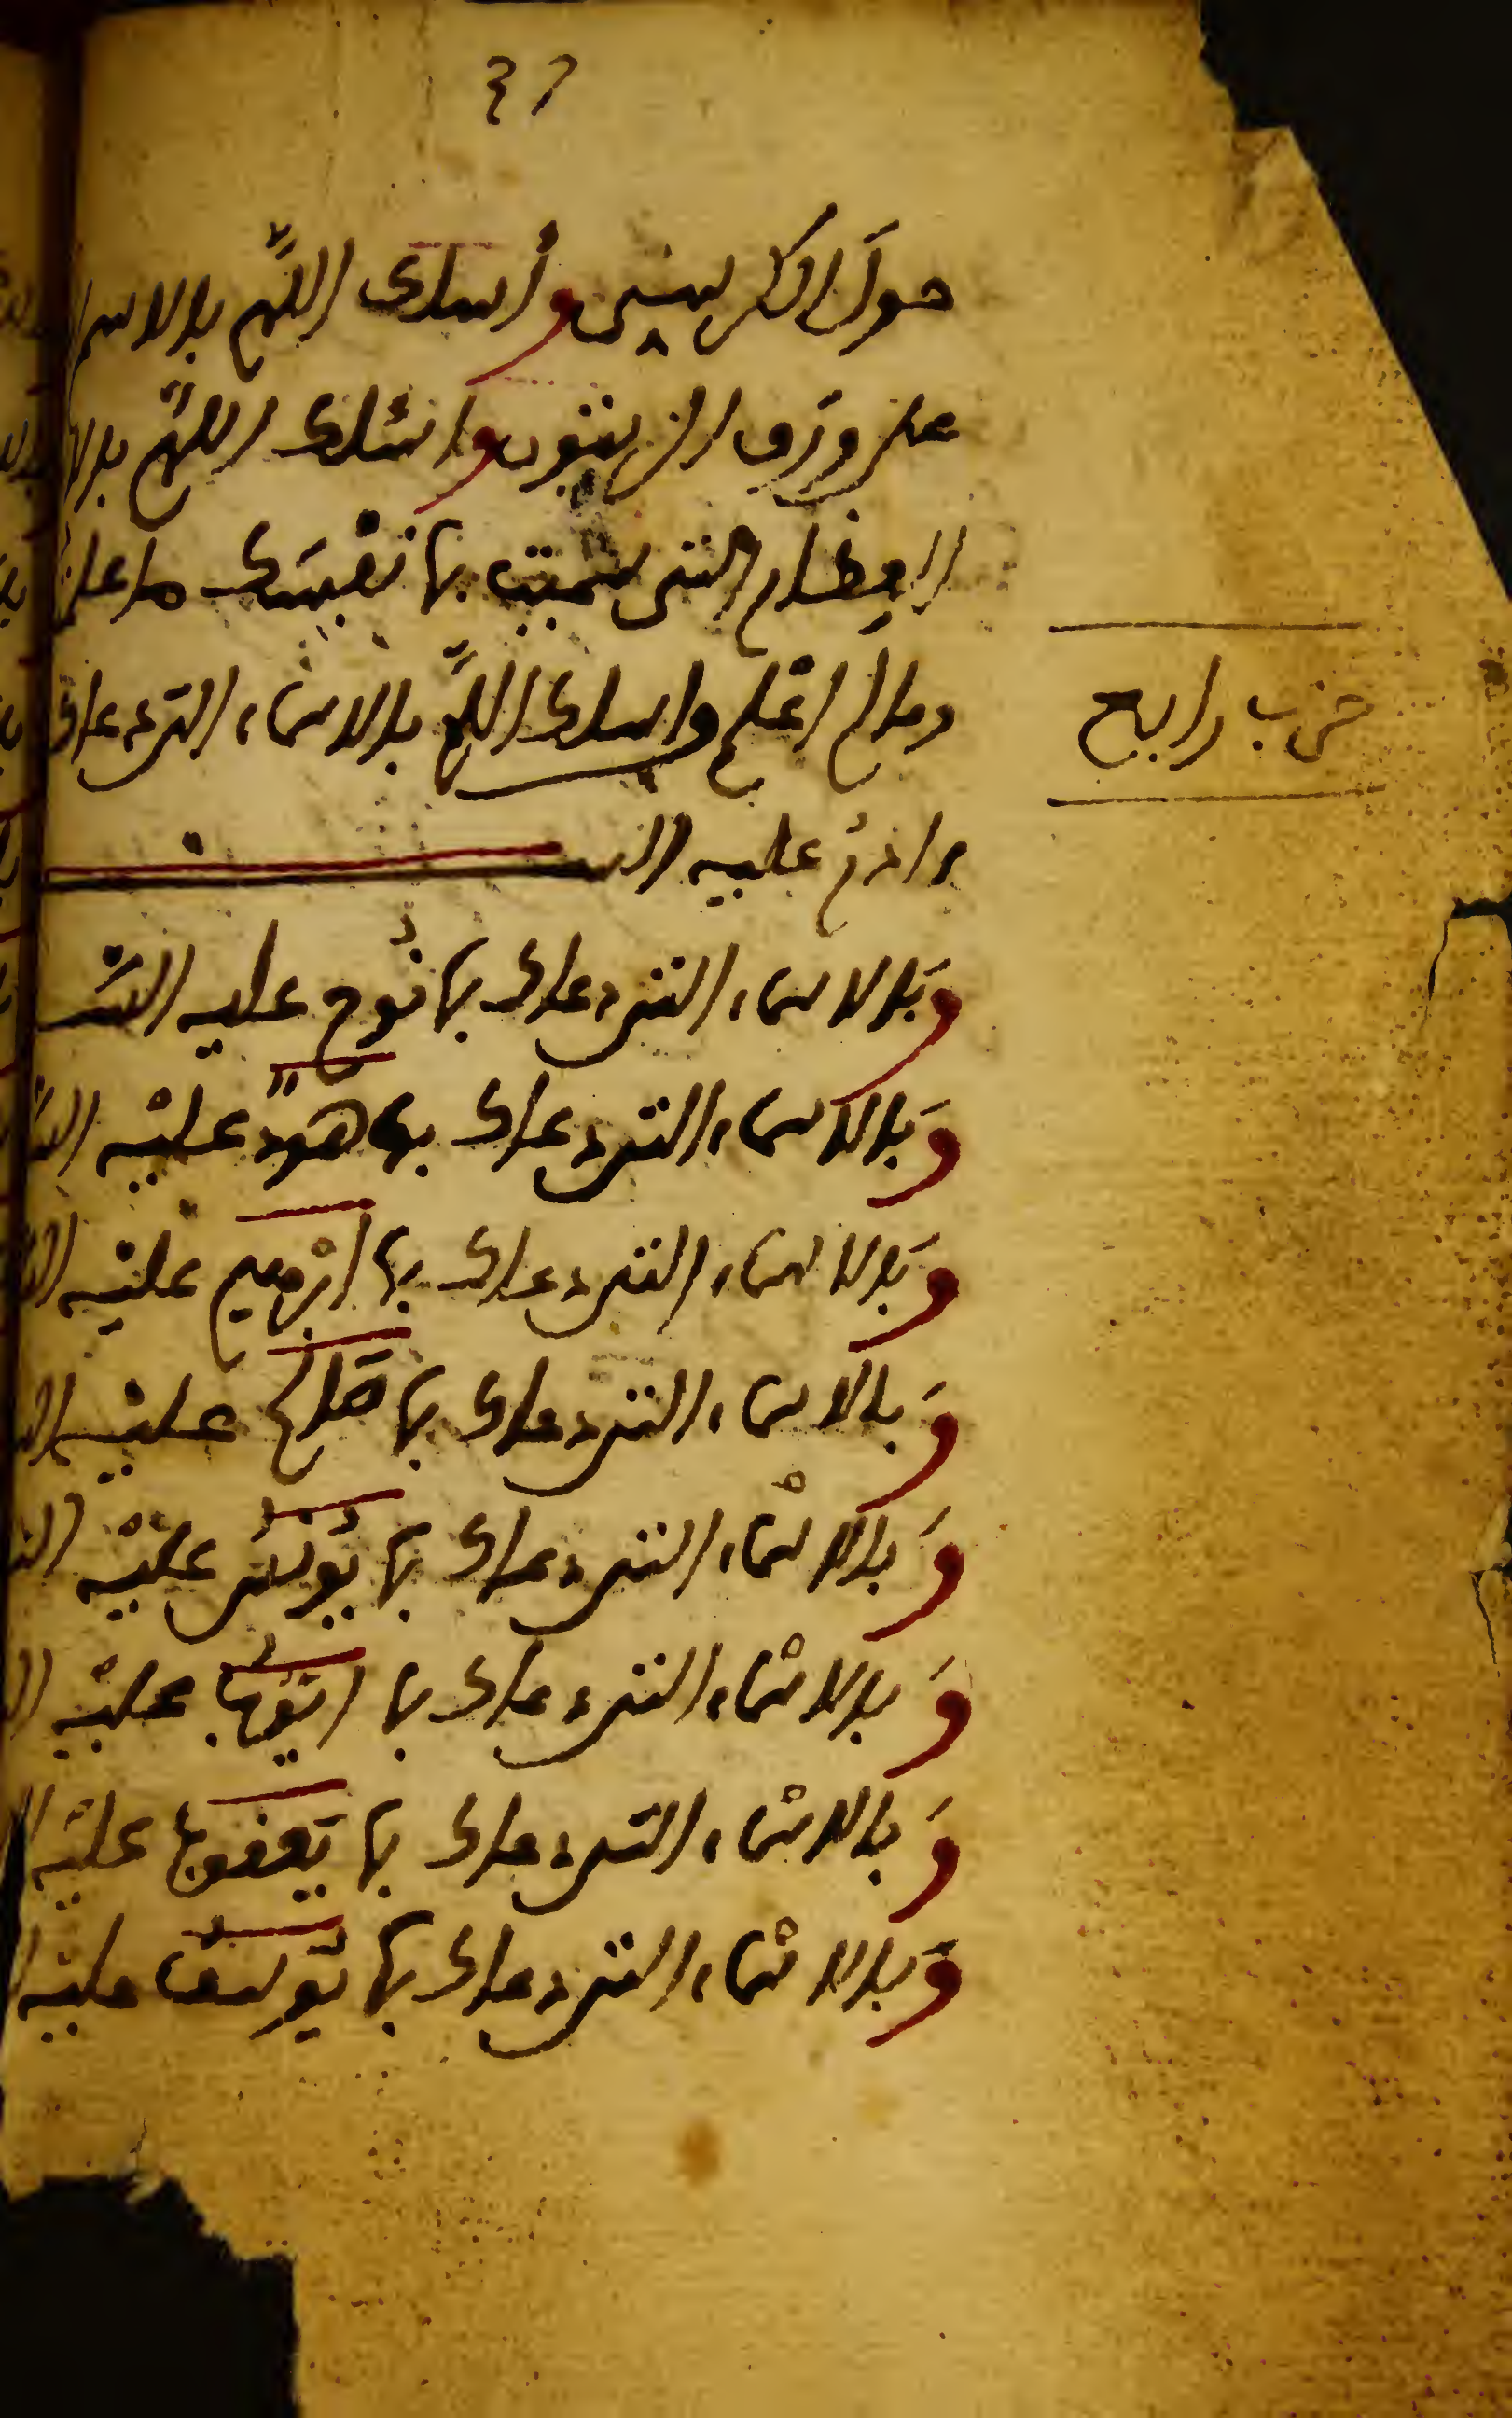 ٤٦
حول الكرسي وأسلك اللهم بالاسم
على ورق الزيتون واسئلك اللهم بالا
العظام التي سميت بها نفسك ما علمت
وما لم اعلم واسلك اللهم بالاسماء التي دعاك
حزب رابع
ادم عليه الس
وبالاسماء التي دعاك بها نوح عليه الس
وبالاسماء التي دعاك بها هود عليه الس
وبالاسماء التي دعاك بها ابرهيم عليه
وبالاسماء التي دعاك بها صالح عليه
وبالاسماء التي دعاك بها يونس عليه
وبالاسماء التي دعاك بها ايوب عليه
وبالاسماء التي دعاك بها يعقوب عليه
وبالاسماء التي دعاك بها يوسف عليه